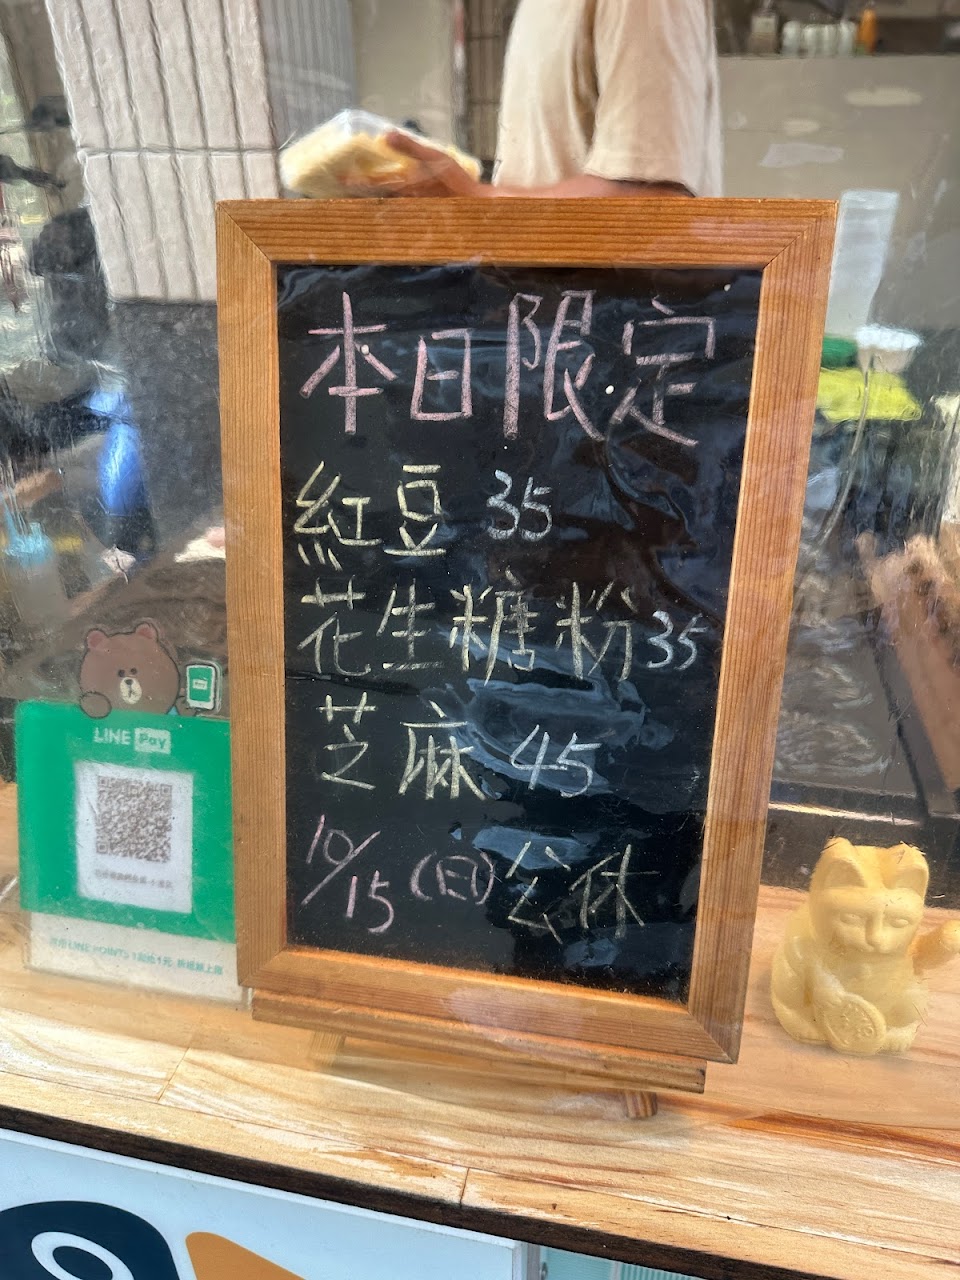 本日限定
紅豆 35
花生糖粉 35
芝麻 45
10/15 (日) 公休
LINE Pay